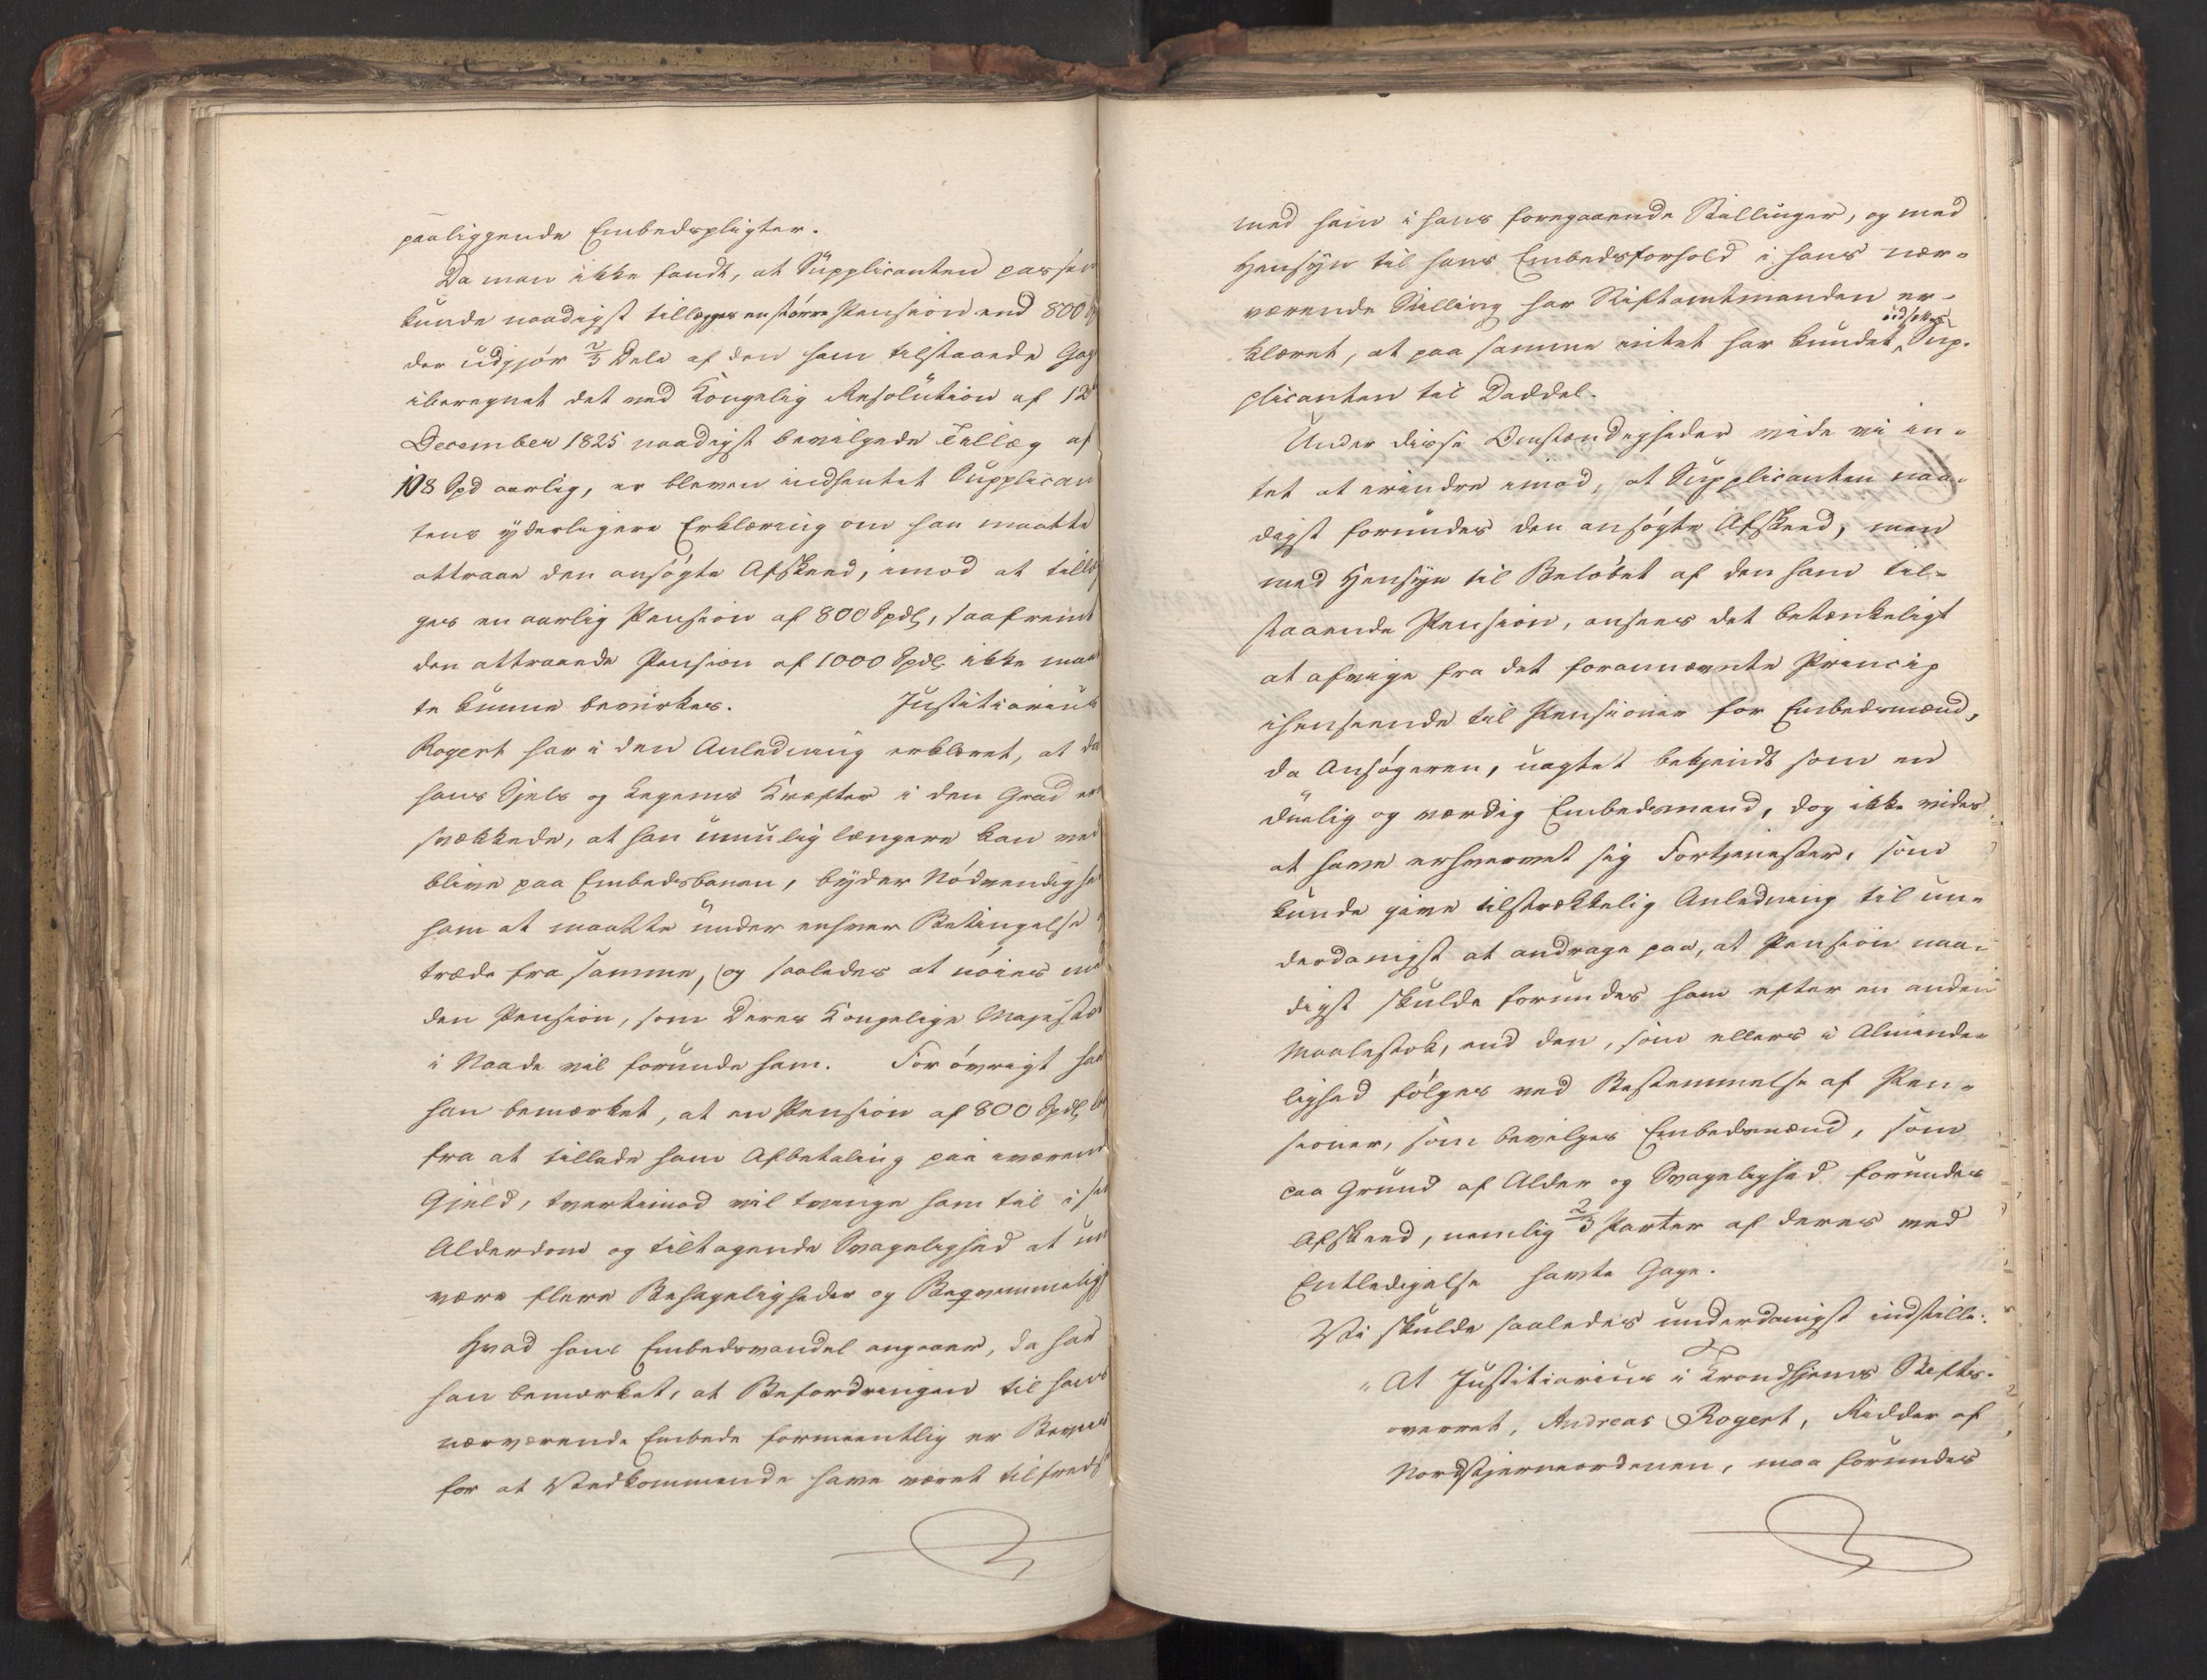 paaliggende Embedspligter.
Da man ikke fandt, at Supplicanten passen
kunde naadigst tillægges en større Pension end 800
der udgjør 2/3 Dele af den ham tilstaaede Gag
iberegnet det ved Kongelig Resolution af 12
December 1825 naadigst bevilgede Tillæg af
108 Spd aarlig, er bleven indhentet Supplican
tens yderligere Erklæring om han maatte
attraae den ansøgte Afskeed, imod at tillæg
ges en aarlig Pension af 800 Spdl, saafremt
den attraaede Pension af 1000 Spdl. ikke maat
te kunne bevirkes. Justitiarius
Rogert har i den Anledning erklæret, at da
hans Sjels og Legems Kræfter i den Grad er
svækkede, at han umulig længere kan ved
blive paa Embedsbanen, byder Nødvendighe
ham at maatte under enhver Betingelse
træde fra samme, og saaledes at nøies med
den Pension, som Deres Kongelige Majestæt
i Naade vil forunde ham. For øvrigt har
han bemærket, at en Pension af 800 Spdl
fra at tillade ham Afbetaling paa iværend
Gjeld, tvertimod vil tvinge ham til i sin
Alderdom og tiltagende Svagelighed at und
være flere Behageligheder og Beqvemmelig
Hvad hans Embedsvandel angaaer, da har
han bemærket, at Befordringen til hans
nærværende Embede formeentlig er Beviis
for at Vedkommende have været tilfreds
med ham i hans foregaaende Stillinger, og med
Hensyn til hans Embedsforhold i hans nær-
værende Stilling har Stiftamtmanden er-
klæret, at paa samme intet har kundet udsættes Sup-
plicanten til Daddel.
Under disse Omstændigheder vide vi in-
tet at erindre imod, at Supplicanten naa-
digst forundes den ansøgte Afskeed, men
med Hensyn til Beløbet af den ham til-
staaende Pension, ansees det betænkeligt
at afvige fra det forannævnte Princip
ihenseende til Pensioner for Embedsmænd,
da Ansøgeren, uagtet bekjendt som en
duelig og værdig Embedsmand, dog ikke vides
at have erhvervet sig Fortjenester, som
kunde give tilstrækkelig Anledning til un-
derdanigst at andrage paa, at Pension naa-
digst skulde forundes ham efter en anden
Maalestok, end den, som ellers i Alminde-
lighed følges ved Bestemmelse af Pen-
sioner, som bevilges Embedsmænd, som
paa Grund af Alder og Svagelighed forundes
Afskeed, nemlig 2/3 Parter af deres ved
Entledigelse havte Gage.
Vi skulde saaledes underdanigst indstille:
"At Justitiarius i Trondhjems Stifts-
overret, Andreas Rogert, Ridder af
Nordstjerneordenen, maa forundes